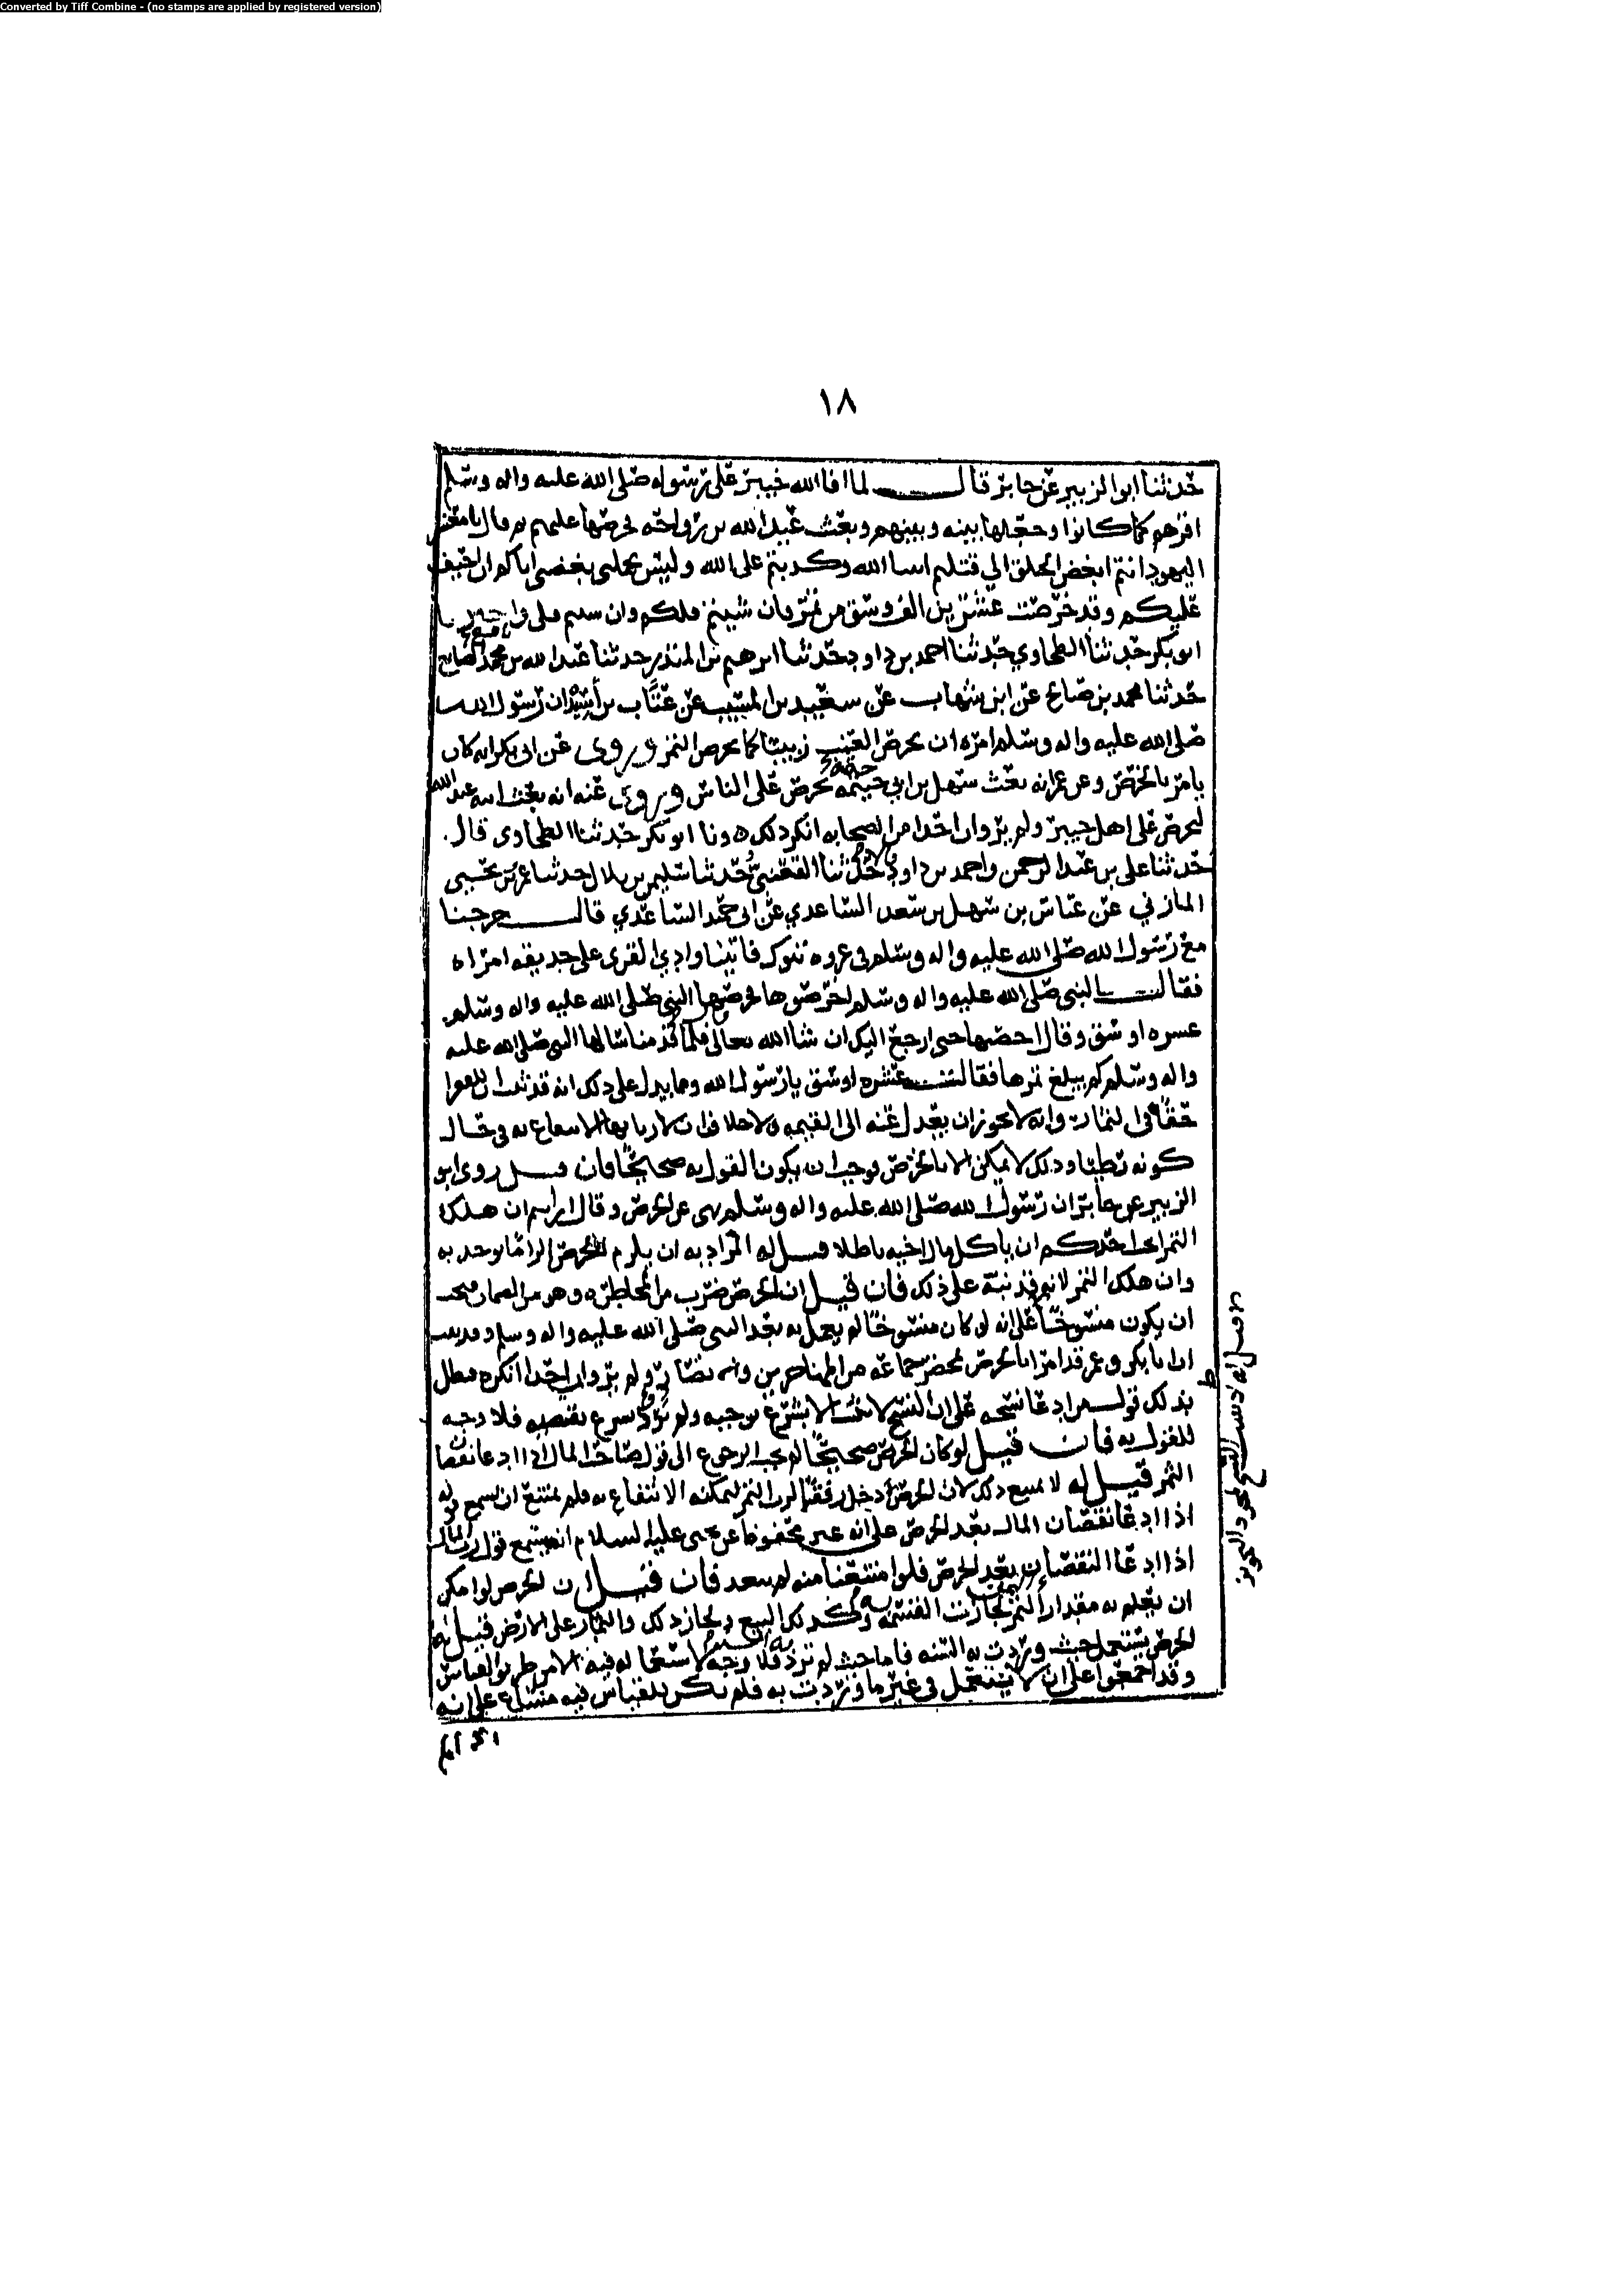 Converted by Tiff Combine - (no stamps are applied by registered version)
١٨
حدثنا ابو الزبير عن جابر قال لما افا الله خيبر على رسوله صلى الله عليه واله وسلم
اقرهم كما كانوا وجعلها بينه وبينهم وبعث عبدالله بن رواحه فخرصها عليهم ثم قال يا معشر
اليهود انتم ابغض الخلق الي قتلتم انبيا الله وكذبتم على الله وليس يحملني بغضي اياكم ان احيف
عليكم وقد خرصت عشرين الف وسق من تمر فان شيتم فلكم وان شيتم فلي
ابو بكر حدثنا الطحاوي حدثنا احمد بن داود حدثنا ابرهيم بن المنذر حدثنا عبدالله بن نافع محمد الصايع
حدثنا محمد بن صالح عن ابن شهاب عن سعيد بن المسيب عن عتاب بن أسيد ان رسول الله
صلى الله عليه واله وسلم امره ان يخرص العنب زبيبا كما يخرص التمر وروى عن ابي بكر انه كان
يامر بالخرص وعن عمر انه بعث سهل بن ابي حثمه يخرص على الناس وروى عنه انه بعث ابنه عبدالله
ليخرص على اهل خيبر ولم يرو ان احدا من الصحابه انكر ذلك ونا ابو بكر حدثنا الطحاوى قال
حدثنا على بن عبدالرحمن واحمد بن داود قالا حدثنا القعنبى حدثنا سليمن بن بلال حدثنا عمرو بن يحيى
المازني عن عباس بن سهل بن سعد الساعدي عن ابى حميد الساعدي قال خرجنا
مع رسول الله صلى الله عليه واله وسلم في غزوه تبوك فاتينا وادي القرى على حديقه امراه
فقال النبي صلى الله عليه واله وسلم اخرصوها فخرصها النبي صلى الله عليه واله وسلم
عشره اوسق وقال احصيها حتى ارجع اليك ان شا الله تعالى فلما قدمنا سالها النبي صلى الله عليه
واله وسلم كم بلغ ثمرها فقالت عشره اوسق يا رسول الله ومما يدل على ذلك انه قد ثبت ان للفقرا
حقا في الثمار وانه لا يجوز ان يعدل عنه الى القيمه ولا خلاف ان لاربابها الانتفاع به في حال
كونه رطبا وذلك لا يمكن الا بالخرص فوجب ان يكون القول به صحيحا فان قيل روى ابو
الزبير عن جابر ان رسول الله صلى الله عليه واله وسلم نهى عن الخرص وقال ارايتم ان هلك
التمر ايحب احدكم ان ياكل مال اخيه باطلا قيل له المراد به ان يلزم الخرص الزاما يوخذ به
وان هلك التمر لانه قد نبه على ذلك فان قيل ان الخرص ضرب من المخاطره وهو من القمار فيجب
ان يكون منسوخا على انه لو كان منسوخا لم يعمل به بعد النبي صلى الله عليه واله وسلم وقد ثبت
ان ابا بكر وعمر قد امرا بالخرص بمحضر جماعه من المهاجرين والانصار ولم يرو ان احدا انكره فبطل
بذلك قول من ادعا نسخه على ان النسخ لا يثبت الا بشرع يوجبه ولم يرد شرع يقتضيه فلا وجه
للقول به فان قيل لو كان الخرص صحيحا لم يجب الرجوع الى قول صاحب المال اذا ادعا نقصان
الثمر قيل له لا يمنع ذلك لان الخرص أدخل رفقا لرب التمر ليمكنه الانتفاع به فلم يمتنع ان يسمع قوله
اذا ادعا نقصان المال بعد الخرص على انه غير محفوظ عن يحيى عليه السلام انه يسمع قول رب المال
اذا ادعا النقصان بعد الخرص فلو امتنعنا منه لم يبعد فان قيل ان الخرص لو امكن
ان يعلم به مقدار التمر لجازت القسمه به وكذلك البيع ولجاز ذلك والثمار على الارض قيل له
الخرص يستعمل حيث وردت به السنه فاما حيث لم ترد به السنه فلا وجه لاستعماله فيه الا من طريق القياس
وقد اجمعوا على ان لا يستعمل في غير ما وردت به فلم يكن للقياس فيه مساغ على انه